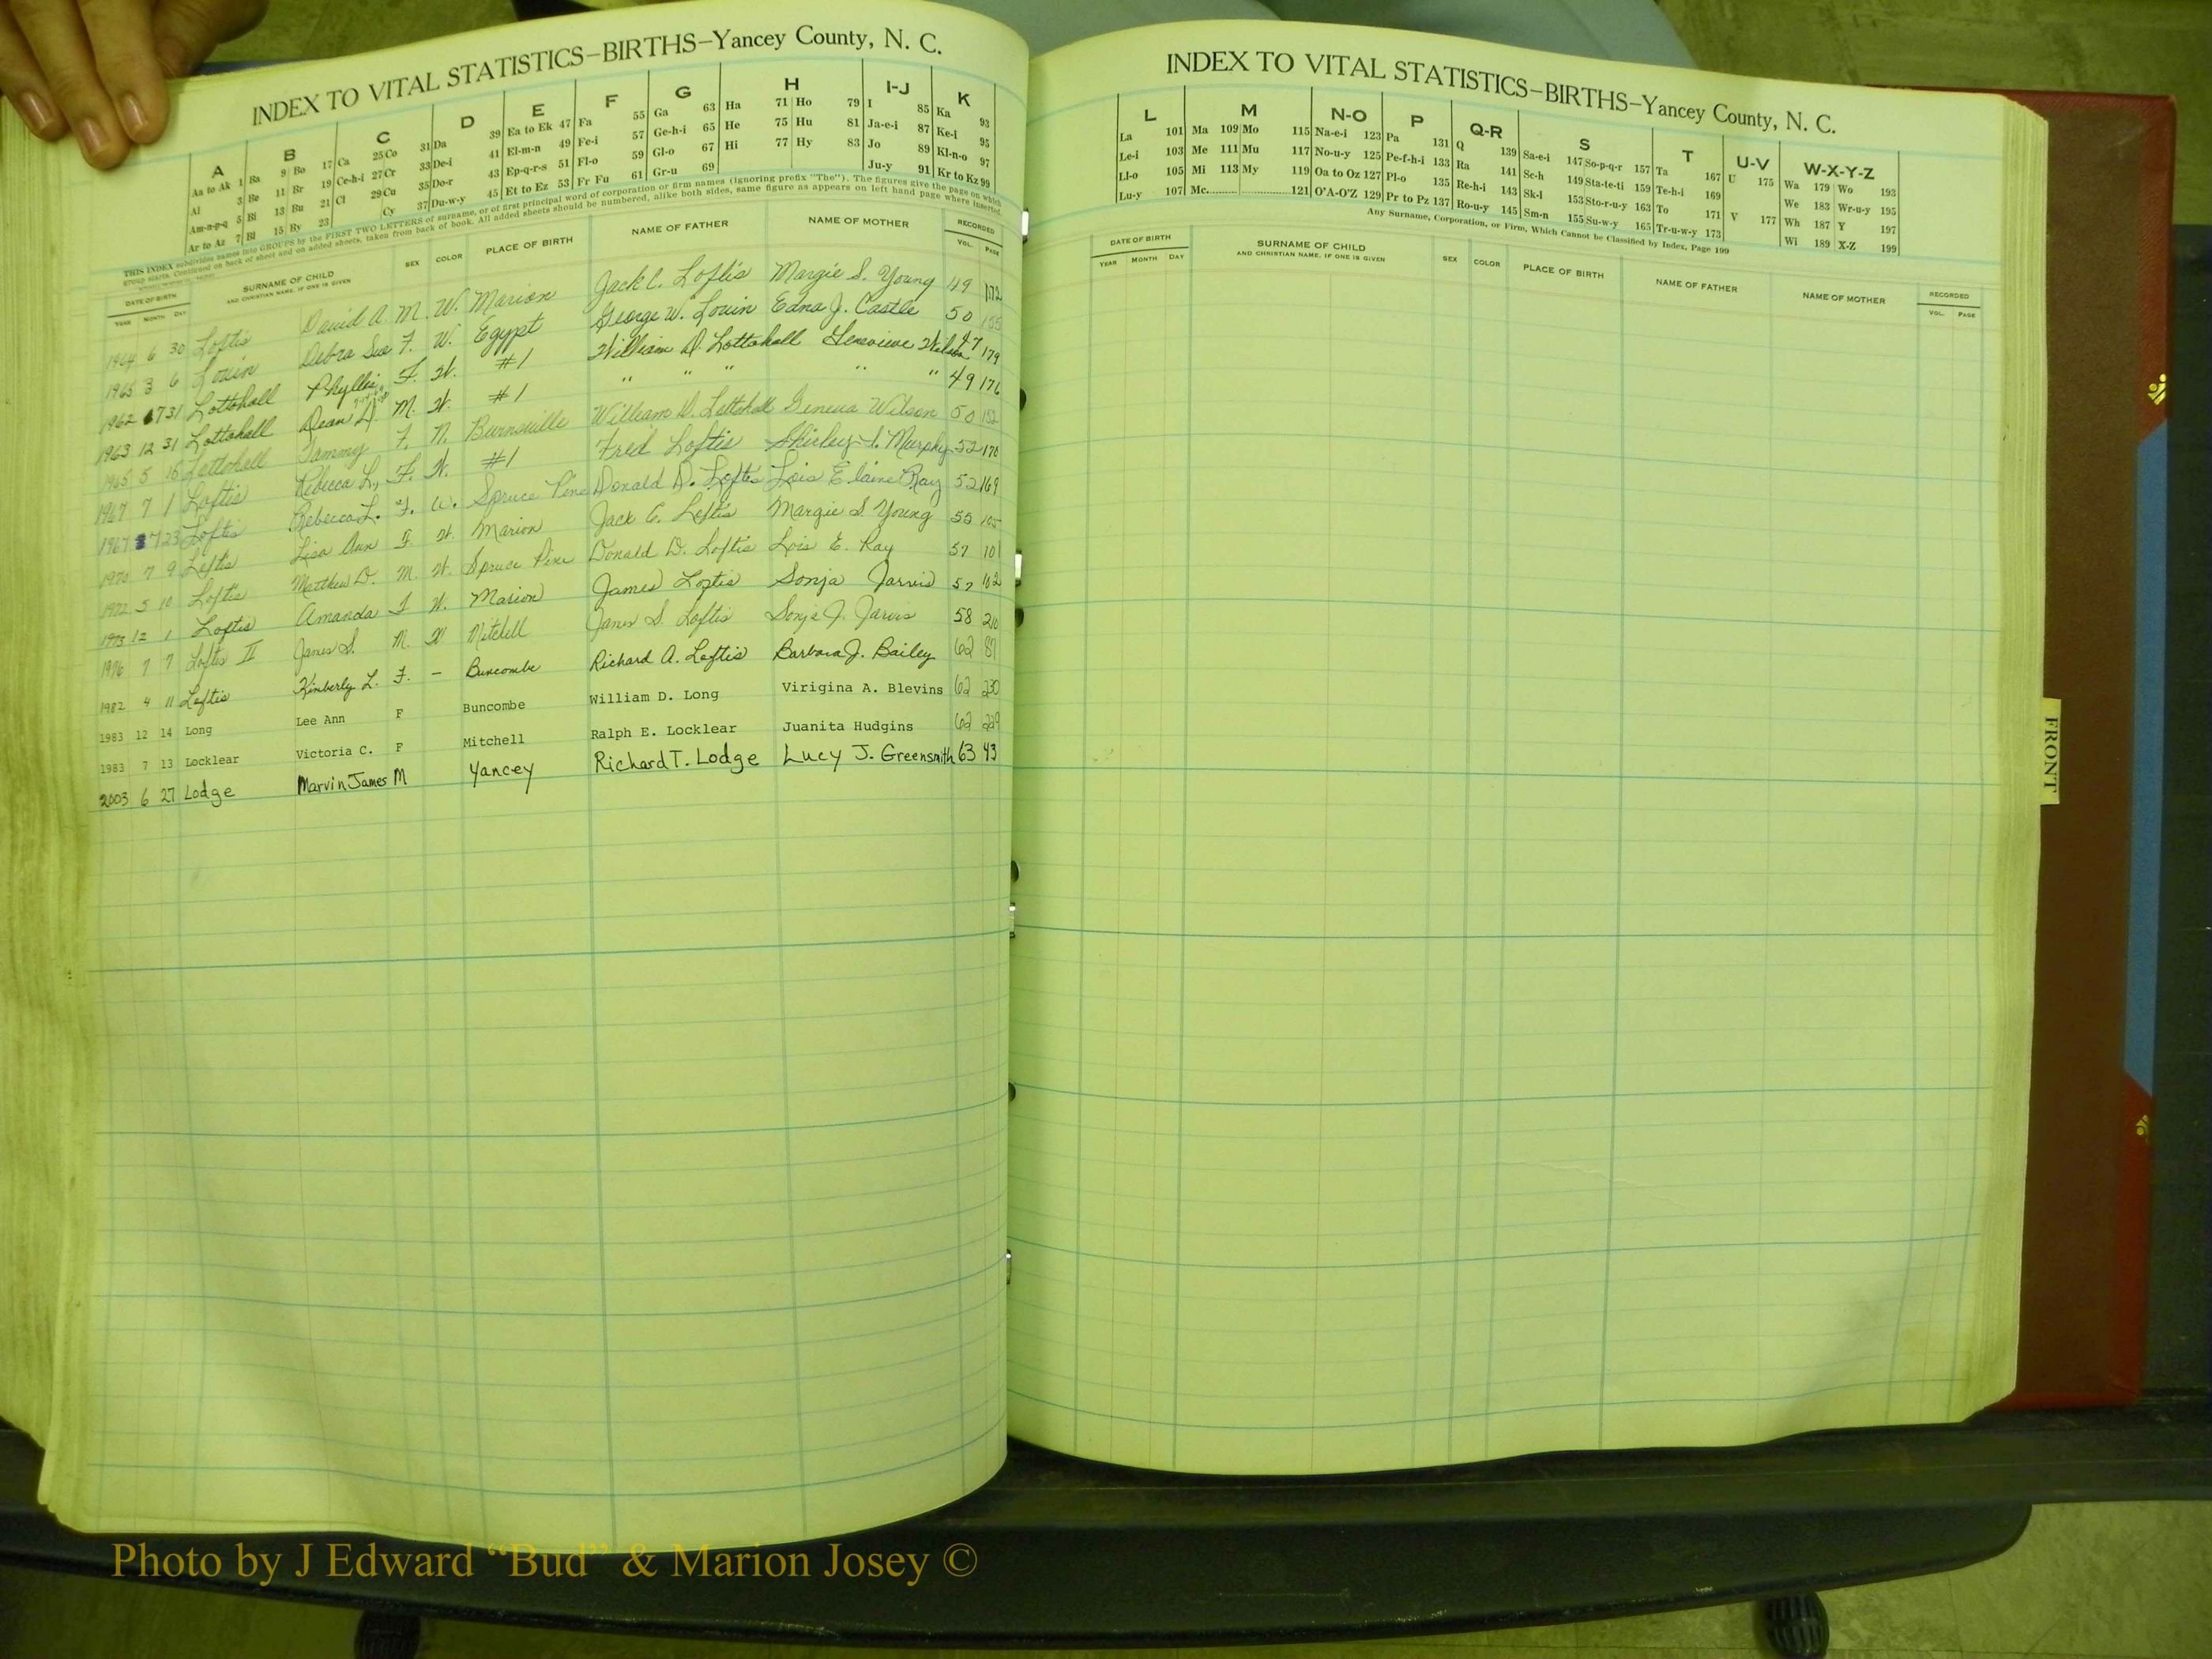 INDEX TO VITAL STATISTICS–BIRTHS–Yancey County, N. C.
A B C D E F G H I-J K
Aa to Ak 1 Ba 9 Bo 17 Ca 25 Co 31 Da 39 Ea to Ek 47 Fa 55 Ga 63 Ha 71 Ho 79 I 85 Ka 93
Al 3 Be 11 Br 19 Ce-h-i 27 Cr 33 De-i 41 El-m-n 49 Fe-i 57 Ge-h-i 65 He 75 Hu 81 Ja-e-i 87 Ke-i 95
Am-n-p-q 5 Bi 13 Bu 21 Cl 29 Cu 35 Do-r 43 Ep-q-r-s 51 Fl-o 59 Gl-o 67 Hi 77 Hy 83 Jo 89 Kl-n-o 97
Ar to Az 7 Bl 15 By 23 Cy 37 Du-w-y 45 Et to Ez 53 Fr Fu 61 Gr-u 69 Ju-y 91 Kr to Kz 99
THIS INDEX subdivides names into GROUPS by the FIRST TWO LETTERS of surname, or of first principal word of corporation or firm names (ignoring prefix "The"). The figures give the page on which
group starts. Continued on back of sheet and on added sheets, taken from back of book. All added sheets should be numbered, alike both sides, same figure as appears on left hand page where inserted.
DATE OF BIRTH SURNAME OF CHILD SEX COLOR PLACE OF BIRTH NAME OF FATHER NAME OF MOTHER RECORDED
YEAR MONTH DAY AND CHRISTIAN NAME, IF ONE IS GIVEN VOL. PAGE
1964 6 30 Loftis David A. M. W. Marion Jack C. Loftis Margie S. Young 49 172
1965 3 6 Louin Debra Sue F. W. Egypt George W. Louin Edna J. Castle 50 155
1962 7 31 Lottohall Phyllis F. W. #1 William D. Lottohall Genevieve Wilson 47 179
1963 12 31 Lottohall Dean D. M. W. #1 " " " " " 49 176
1965 5 15 Lettohall Tammy F. W. Burnsville William D. Lettohall Geneva Wilson 50 152
1967 7 1 Loftis Rebecca L. F. W. #1 Fred Loftis Shirley I. Murphy 52 170
1967 7 23 Loftis Rebecca L. F. W. Spruce Pine Donald D. Loftis Lois Elaine Ray 52 169
1970 7 9 Loftis Lisa Ann F W. Marion Jack C. Loftis Margie S. Young 55 105
1972 5 10 Loftis Matthew D. M. W. Spruce Pine Donald D. Loftis Lois E. Ray 57 101
1973 12 1 Loftis Amanda F W. Marion James Loftis Sonja Jarvis 57 102
1976 7 7 Loftis II James S. M. W Mitchell James S. Loftis Sonja J. Jarvis 58 210
1982 4 11 Loftis Kimberly L. F. – Buncombe Richard A. Loftis Barbara J. Bailey 62 87
1983 12 14 Long Lee Ann F Buncombe William D. Long Virigina A. Blevins 62 230
1983 7 13 Locklear Victoria C. F Mitchell Ralph E. Locklear Juanita Hudgins 62 229
2003 6 27 Lodge Marvin James M Yancey Richard T. Lodge Lucy J. Greensmith 63 43
INDEX TO VITAL STATISTICS–BIRTHS–Yancey County, N. C.
L M N-O P Q-R S T U-V W-X-Y-Z
La 101 Ma 109 Mo 115 Na-e-i 123 Pa 131 Q 139 Sa-e-i 147 So-p-q-r 157 Ta 167 U 175 Wa 179 Wo 193
Le-i 103 Me 111 Mu 117 No-u-y 125 Pe-f-h-i 133 Ra 141 Sc-h 149 Sta-te-ti 159 Te-h-i 169 We 183 Wr-u-y 195
Ll-o 105 Mi 113 My 119 Oa to Oz 127 Pl-o 135 Re-h-i 143 Sk-l 153 Sto-r-u-y 163 To 171 V 177 Wh 187 Y 197
Lu-y 107 Mc. 121 O'A-O'Z 129 Pr to Pz 137 Ro-u-y 145 Sm-n 155 Su-w-y 165 Tr-u-w-y 173 Wi 189 X-Z 199
Any Surname, Corporation, or Firm, Which Cannot be Classified by Index, Page 199
DATE OF BIRTH SURNAME OF CHILD SEX COLOR PLACE OF BIRTH NAME OF FATHER NAME OF MOTHER RECORDED
YEAR MONTH DAY AND CHRISTIAN NAME, IF ONE IS GIVEN VOL. PAGE
FRONT
Photo by J Edward “Bud” & Marion Josey ©